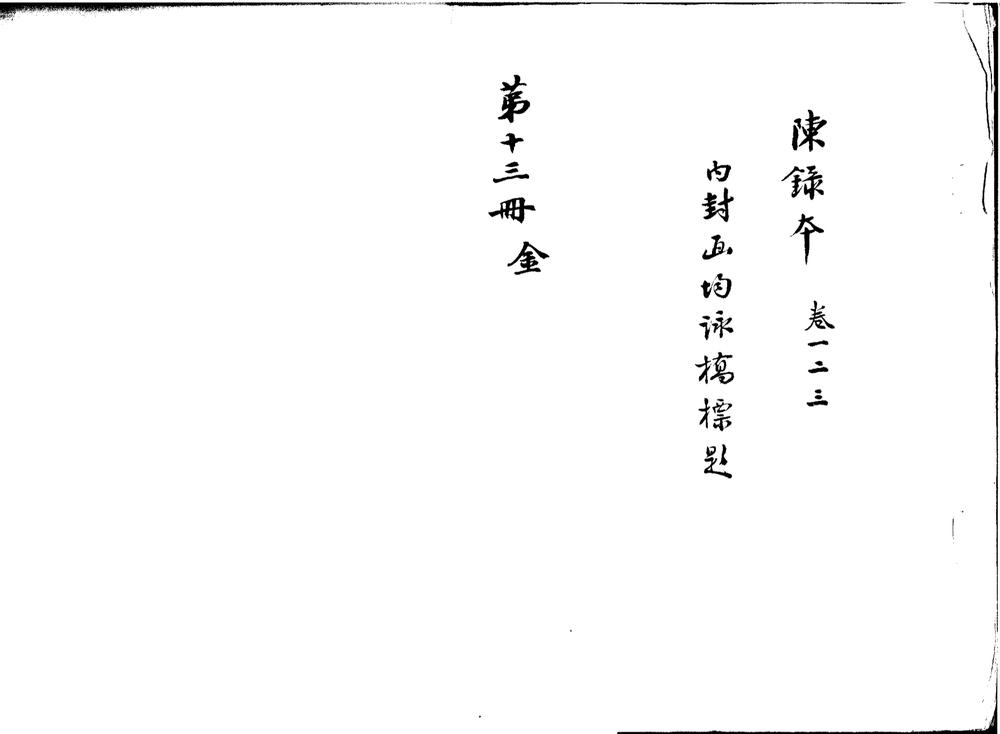 陳錄本 卷一二三
內封面均詠橋標題
第十三冊 金